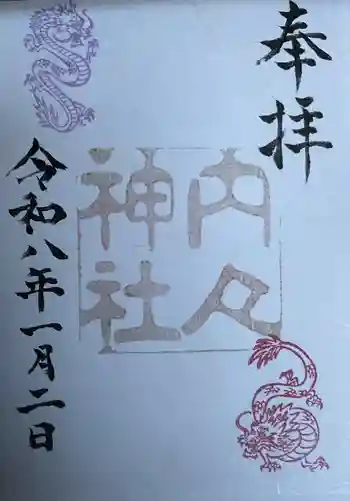 奉拝
内々神社
令和八年一月二日